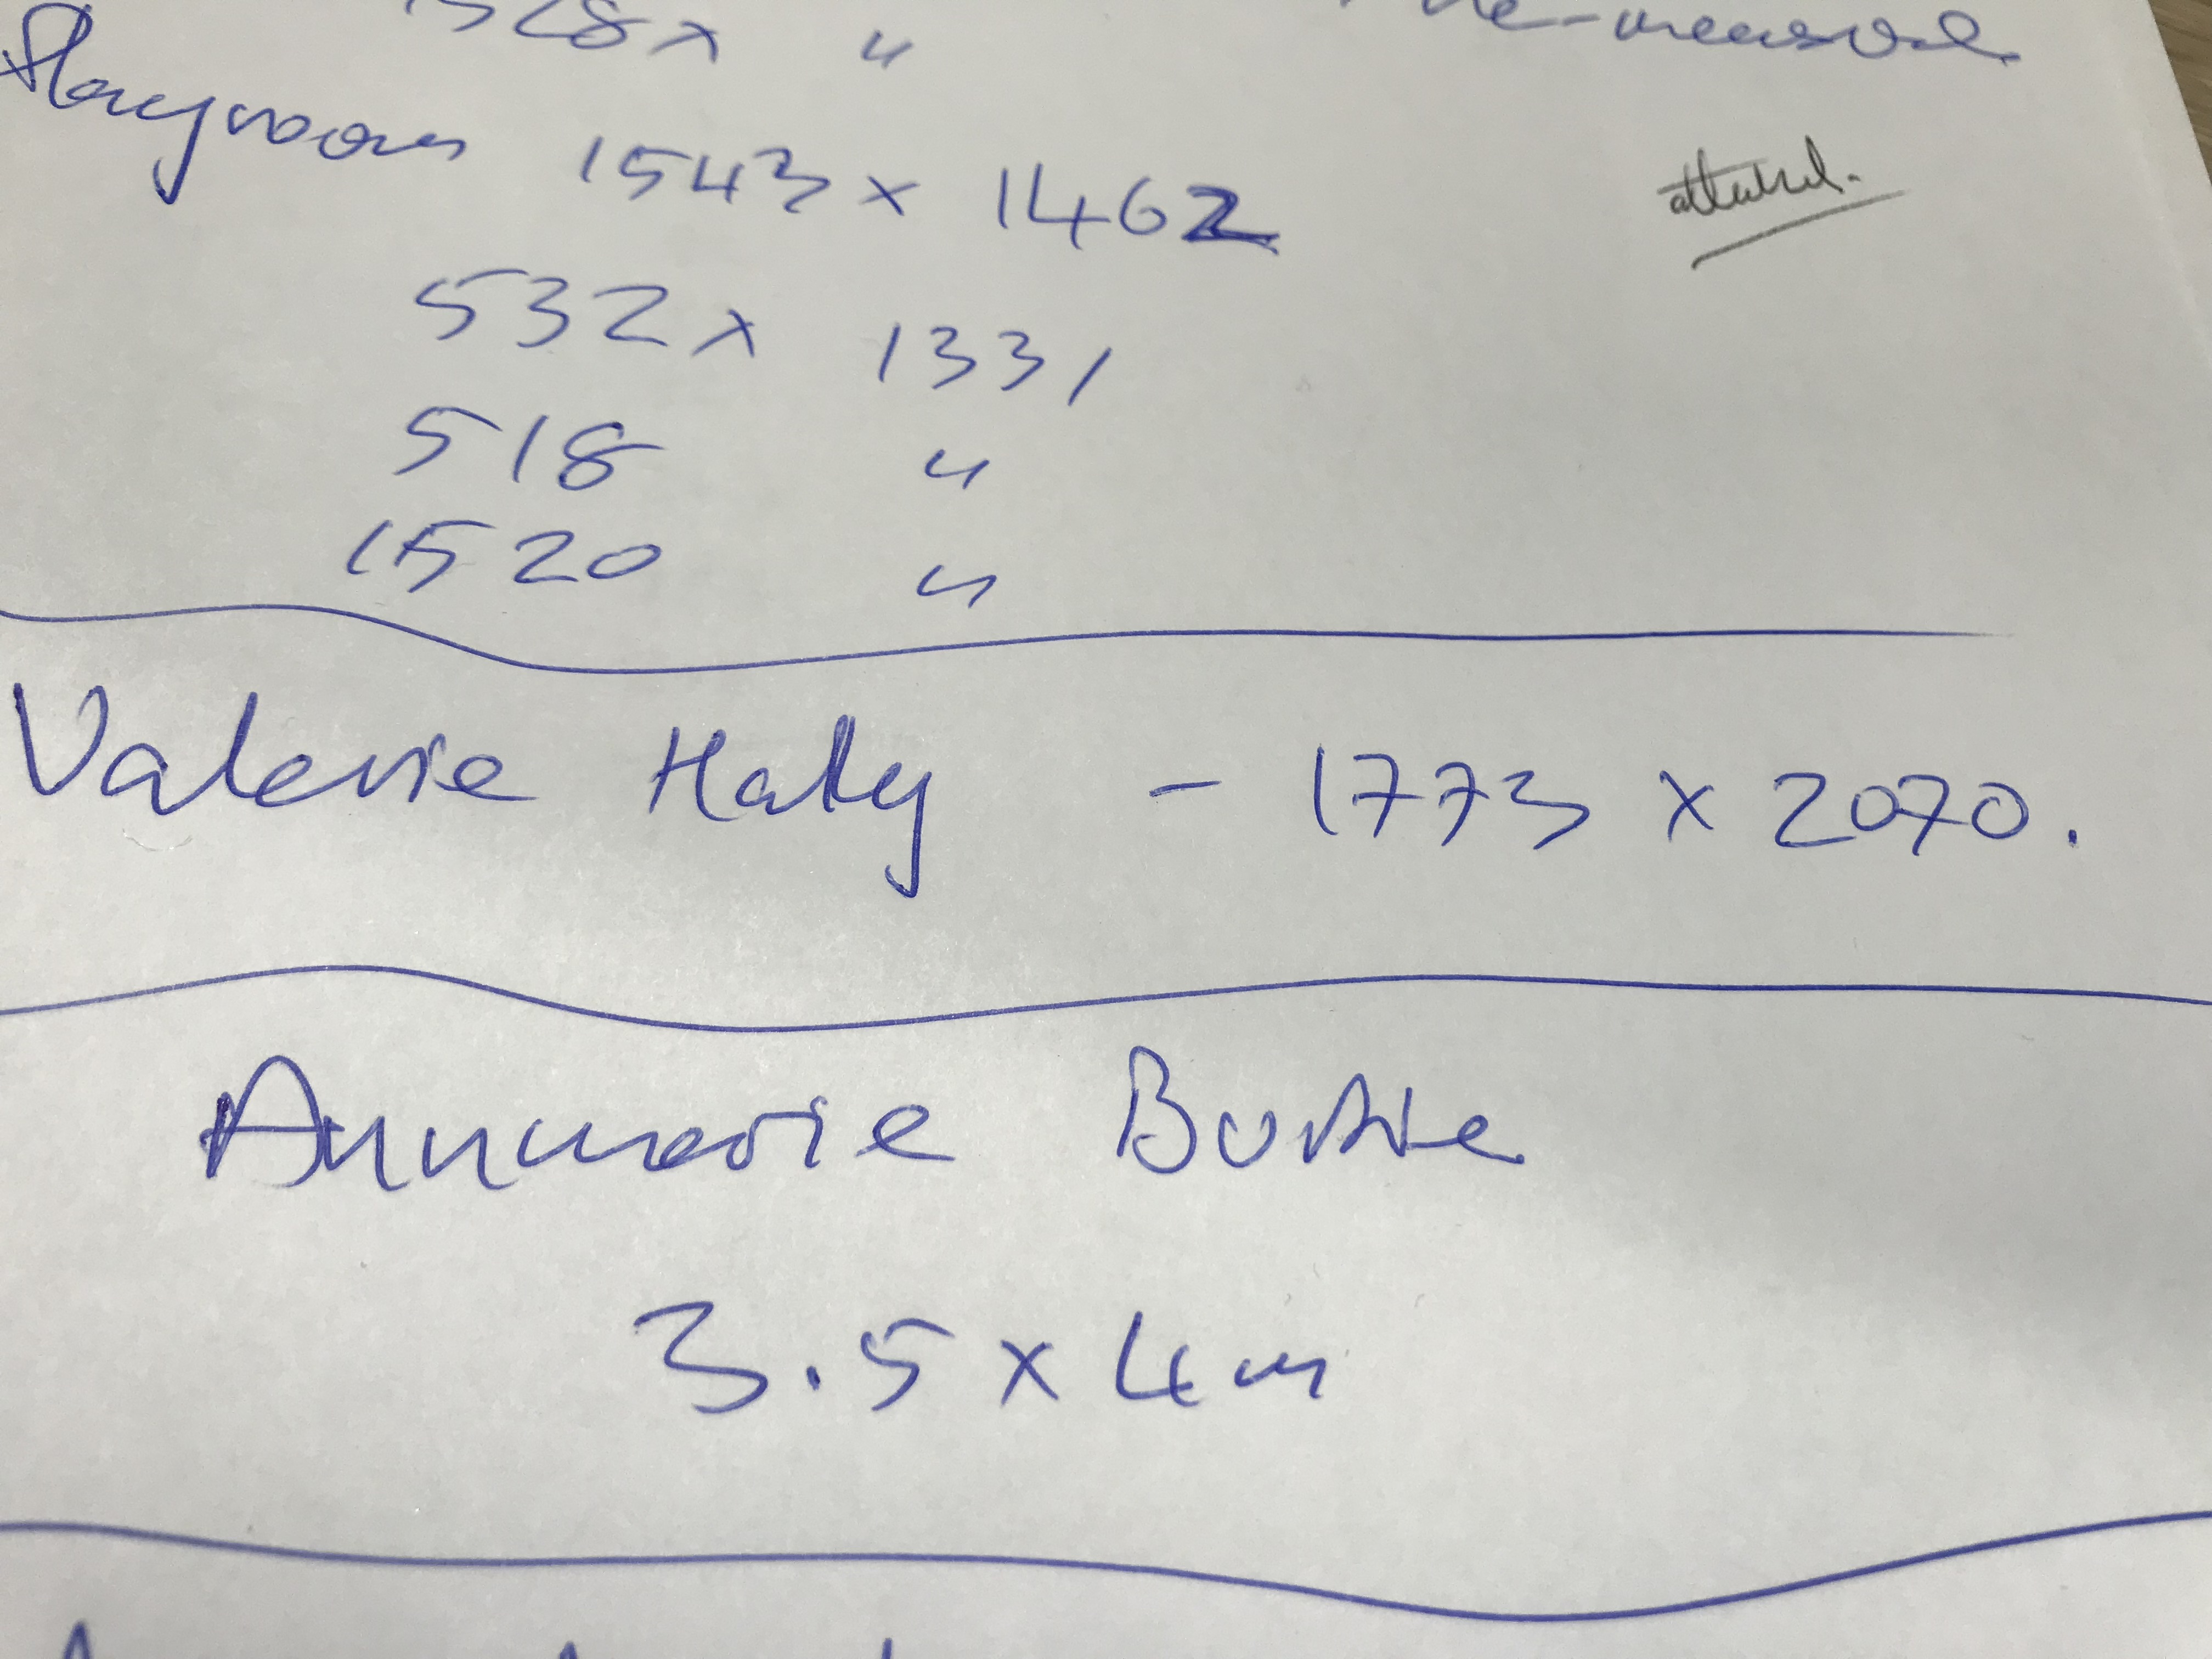 528 x "
re-measure
Playroom 1543 x 1462
attached.
532 x 1331
518 "
1520 "
Valerie Haly - 1773 x 2070.
Annmarie Burke
3.5 x 4m